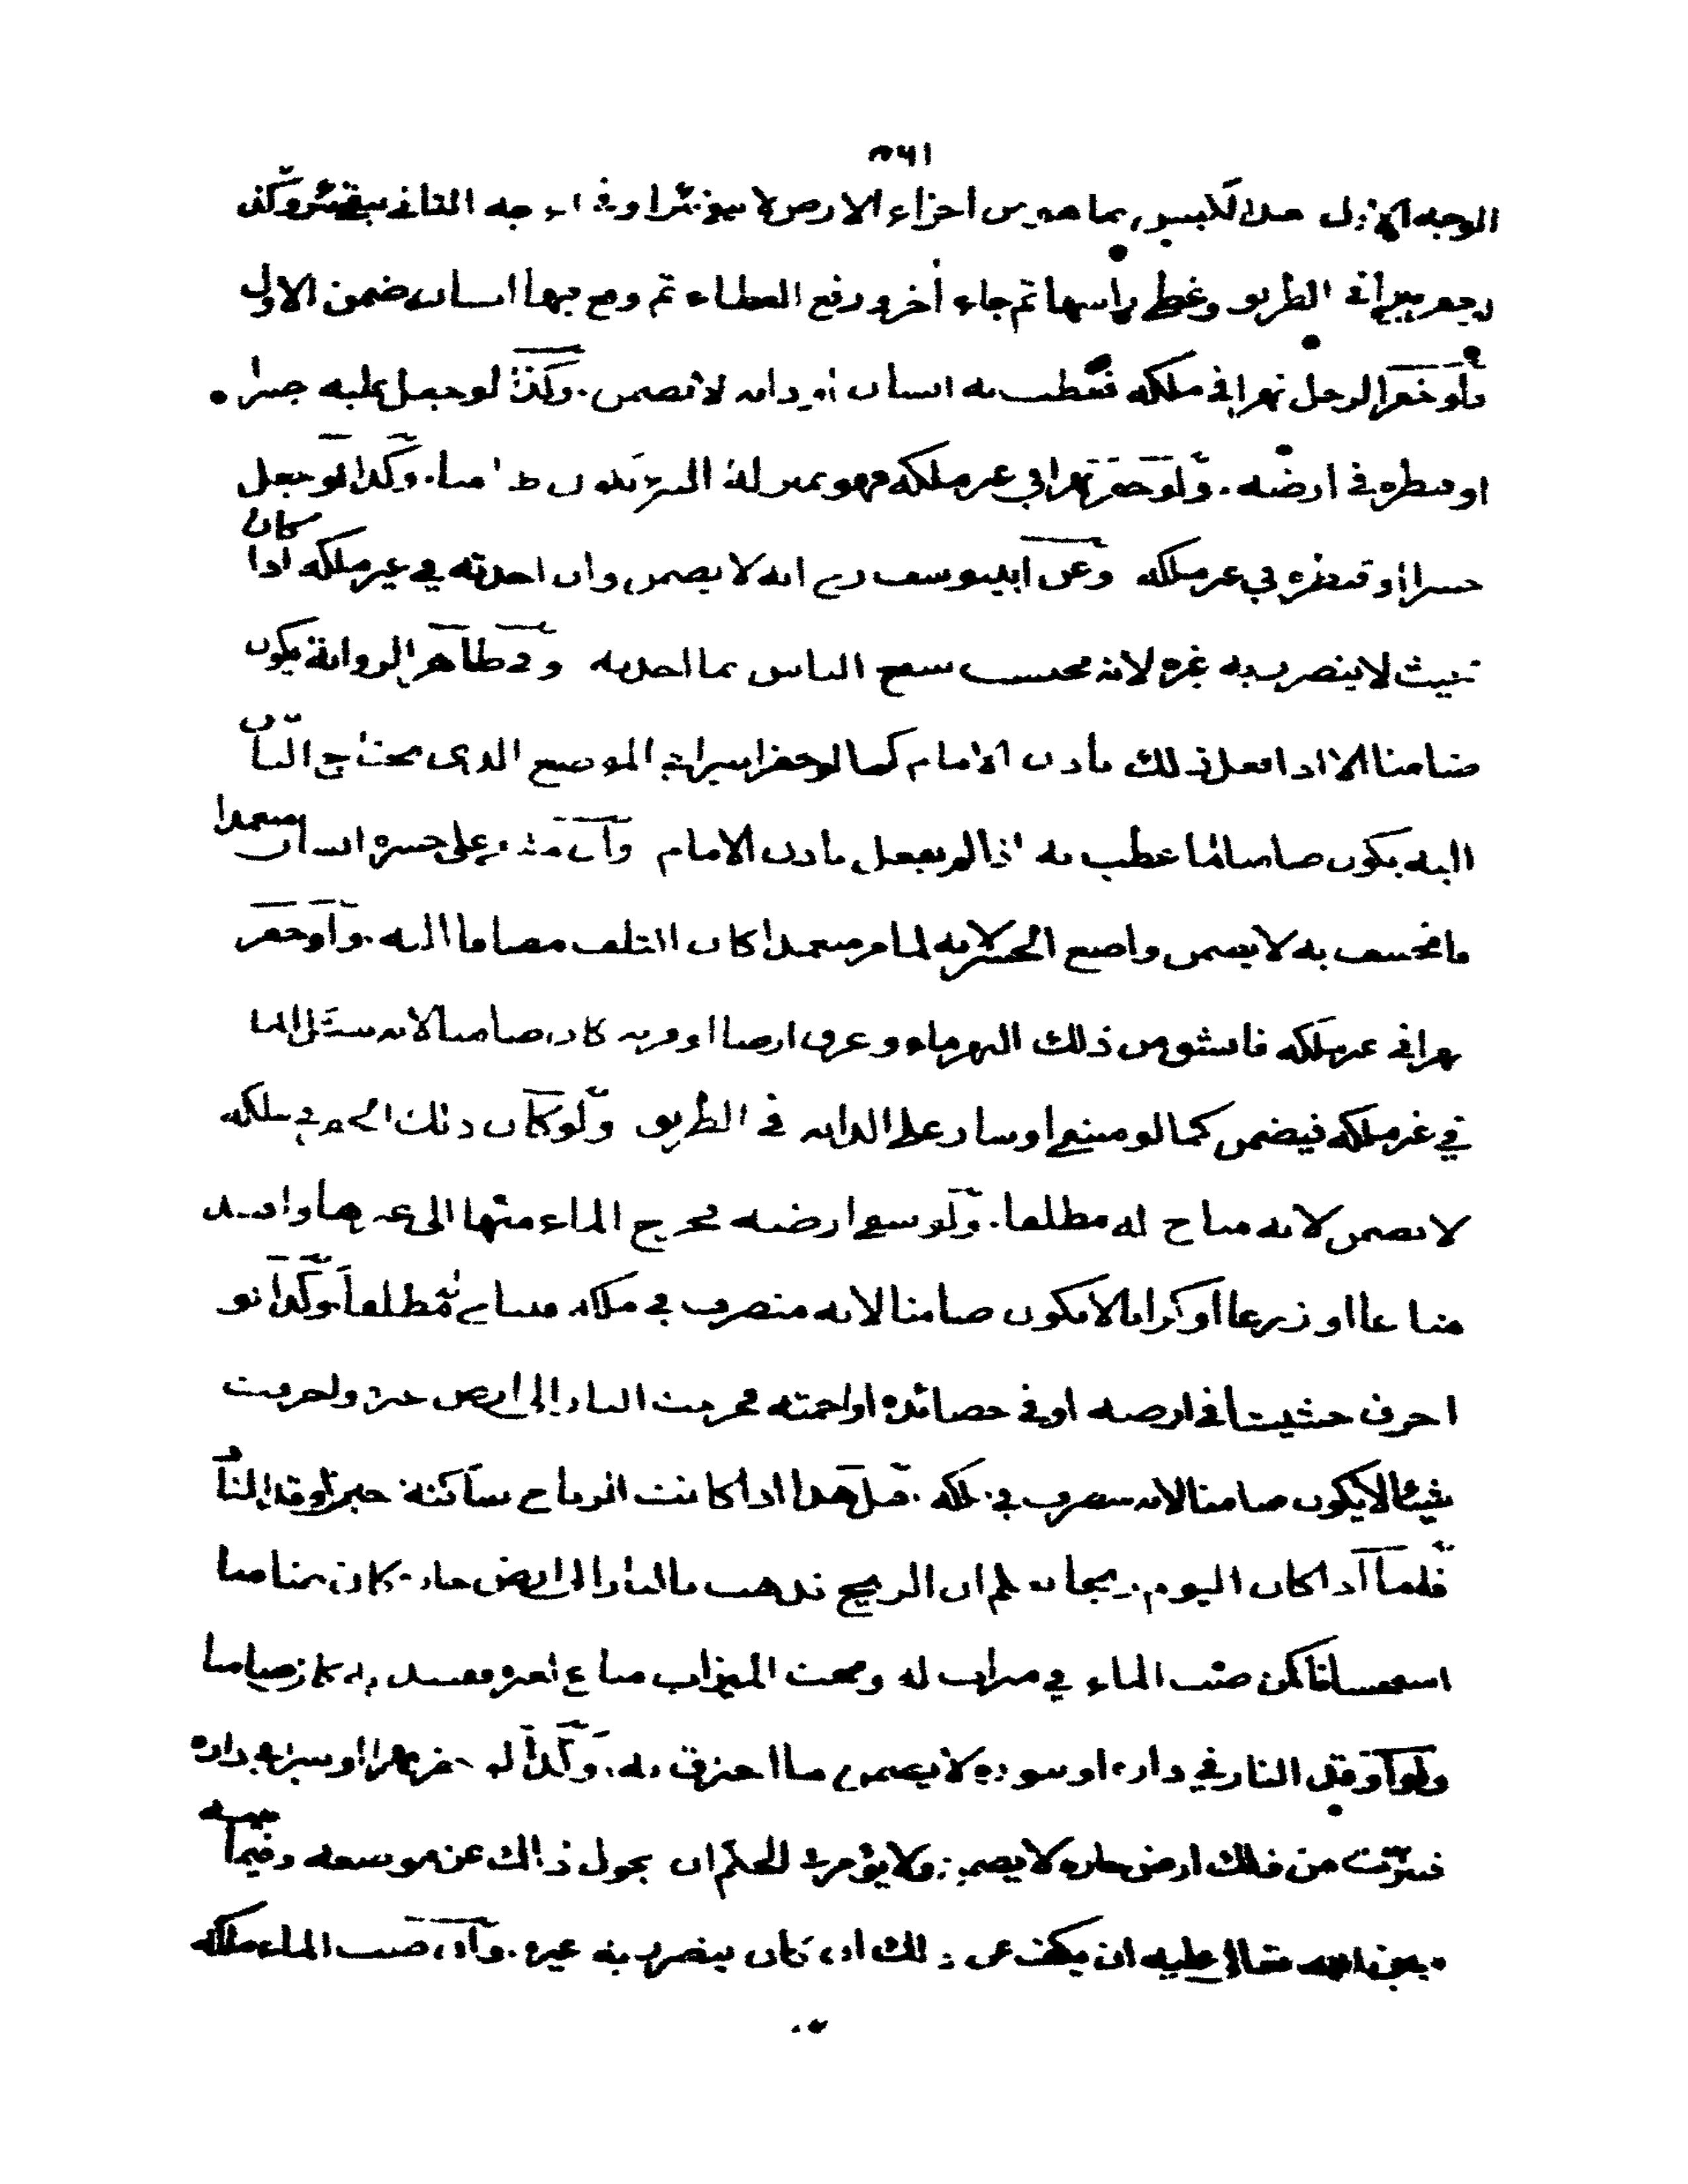 الوجه الاول لان الكبس بما هو من اجزاء الارض لا يبقى بئرا وفي الوجه الثاني يبقى بئر وكذا
بئرا في الطريق وغطى راسها ثم جاء اخر ورفع الغطاء ثم وقع فيها انسان ضمن الاول
ولو حفر الرجل نهرا في ملكه فعطب به انسان او دابه لا يضمن. وكذا لو جعل عليه جسرا
او قنطره في ارضه. ولو حفر نهرا في غير ملكه فهو بمنزلة البئر يكون ضامنا. وكذا لو جعل
جسرا او قنطره في غير ملكه وعن ابي يوسف رح انه لا يضمن وان احدثه في غير ملكه اذا كان
بحيث لا يتضرر به غيره لانه محتسب ينفع الناس بما احدثه وفي ظاهر الرواية يكون
ضامنا الا اذا فعل ذلك باذن الامام كما لو حفر بيرا في الموضع الذي يحتاج الناس
اليه يكون ضامنا لما عطب به اذا لم يفعل باذن الامام وان مشى على جسره انسان متعمدا
فانخسف به لا يضمن واضع الجسر لانه لما مر متعمدا كان التلف مضافا اليه. ولو حفر
نهرا في غير ملكه فانشق من ذلك النهر ماء وغرق ارضا او قرية كان ضامنا لانه سيل الما
في غير ملكه فيضمن كما لو مشى او سار على الدابه في الطريق ولو كان ذلك النهر في ملكه
لا يضمن لانه مباح له مطلقا. ولو سقى ارضه فخرج الماء منها الى غيرها وافسد
متاعا او زرعا او كرابا لا يكون ضامنا لانه متصرف في ملكه مطلقا. وكذا لو
احرق حشيشا في ارضه او في حصائده او اجمته فخرجت النار الى ارض غيره واحرقت
شيئا لا يكون ضامنا لانه متصرف في ملكه. قيل هذا اذا كانت الرياح ساكنة حين اوقد النار
فاما اذا كان اليوم ريحا يعلم ان الريح تذهب بالنار الى ارض جاره كان ضامنا
استحسانا كمن صب الماء في ميزاب له وتحت الميزاب متاع لغيره ففسد به كان ضامنا
ولو اوقد النار في داره او تنوره لا يضمن ما احترق به. وكذا لو حفر نهرا او بيرا في داره
فنزت من ذلك ارض جاره لا يضمن ولا يؤمر في الحكم ان يحول ذلك عن موضعه وفيما بينه
وبين الله تعالى عليه ان يكف عن ذلك ان كان يتضرر به غيره. وان صب الماء ملكه